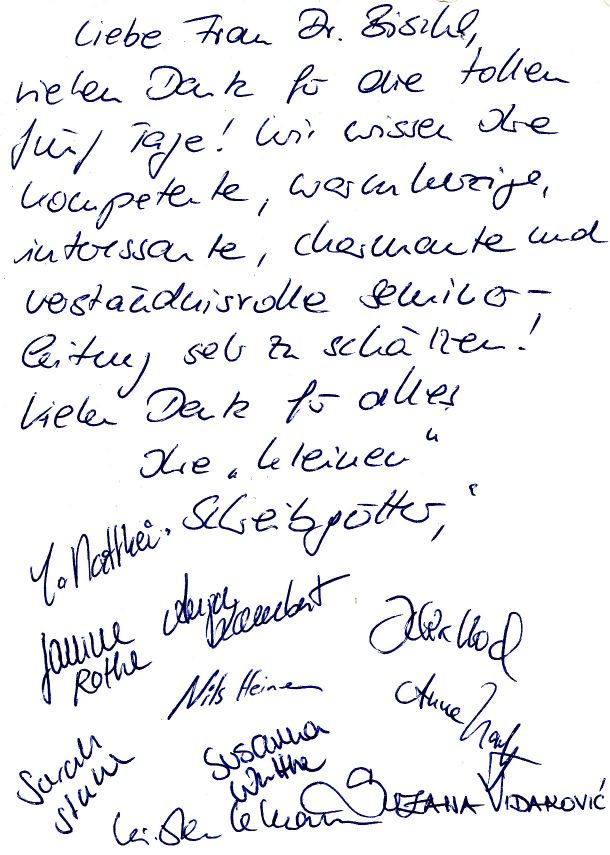 Liebe Frau Dr. Bischl,
vielen Dank für die tollen
fünf Tage! Wir wissen Ihre
kompetente, warmherzige,
interessante, charmante und
verständnisvolle Seminar-
leitung sehr zu schätzen!
Vielen Dank für alles
Ihre „kleinen"
„Schreibgötter"
Y. Matthei
Janine
Rothe
Anja
Nils Heinen
Anne
Sarah
Susanna
Kirsten Lehmann
SUZANA VIDAKOVIĆ